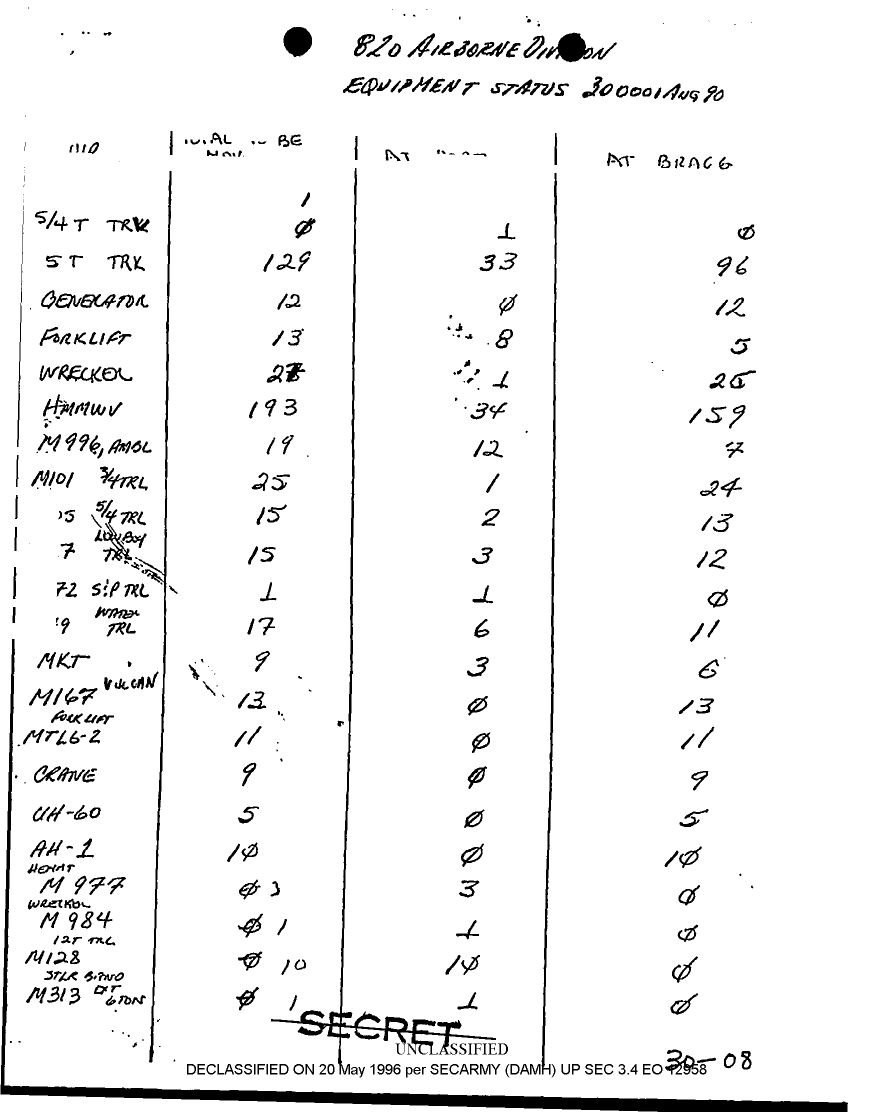 82D AIRBORNE DIVISION
EQUIPMENT STATUS 300001 AUG 90
TOTAL TO BE
AT AT BRAGG
1
5/4 T TRK Ø 1 Ø
5 T TRK 129 33 96
GENERATOR 12 Ø 12
FORKLIFT 13 8 5
WRECKER 1
HMMWV 193 34 159
M996, AMBL 19 12 7
M101 3/4 TRL 25 1 24
5 5/4 TRL 15 2 13
LOWBOY
7 TRL 15 3 12
72 TRL 1 1 Ø
WATER
9 TRL 17 6 11
MKT 9 3 6
M167 VULCAN 13 Ø 13
FORKLIFT
MTL6-2 11 Ø 11
CRANE 9 Ø 9
UH-60 5 Ø 5
AH-1 1Ø Ø 1Ø
HEMMT
M 977 Ø 3 3 Ø
WRECKER
M 984 Ø 1 1 Ø
12T TRL
M128 Ø 10 1Ø Ø
M313 6 TON Ø 1 1 Ø
SECRET
UNCLASSIFIED
30-08
DECLASSIFIED ON 20 May 1996 per SECARMY (DAMH) UP SEC 3.4 EO 12958